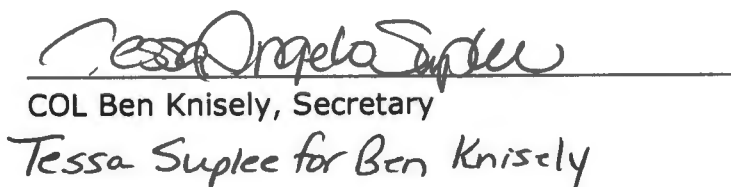 Tessa Angela Suplee
COL Ben Knisely, Secretary
Tessa Suplee for Ben Knisely